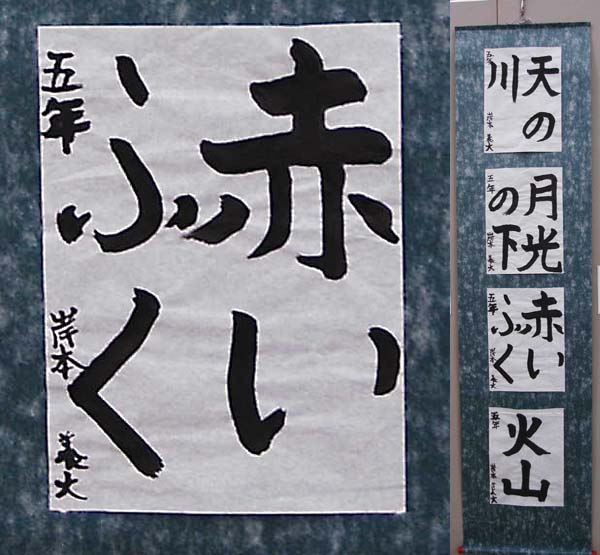 赤い
ふく
五年 岸本 義大
天の
川
五年 岸本 義大
月光
の下
五年 岸本 義大
赤い
ふく
五年 岸本 義大
火山
五年 岸本 義大